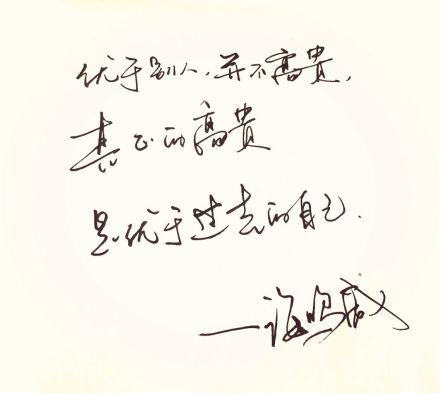 优于别人，并不高贵，
真正的高贵
是优于过去的自己．
——海明威